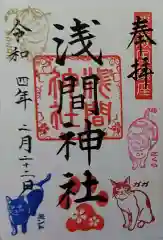 奉拝
浅間神社
浅間神社
令和四年二月二十二日